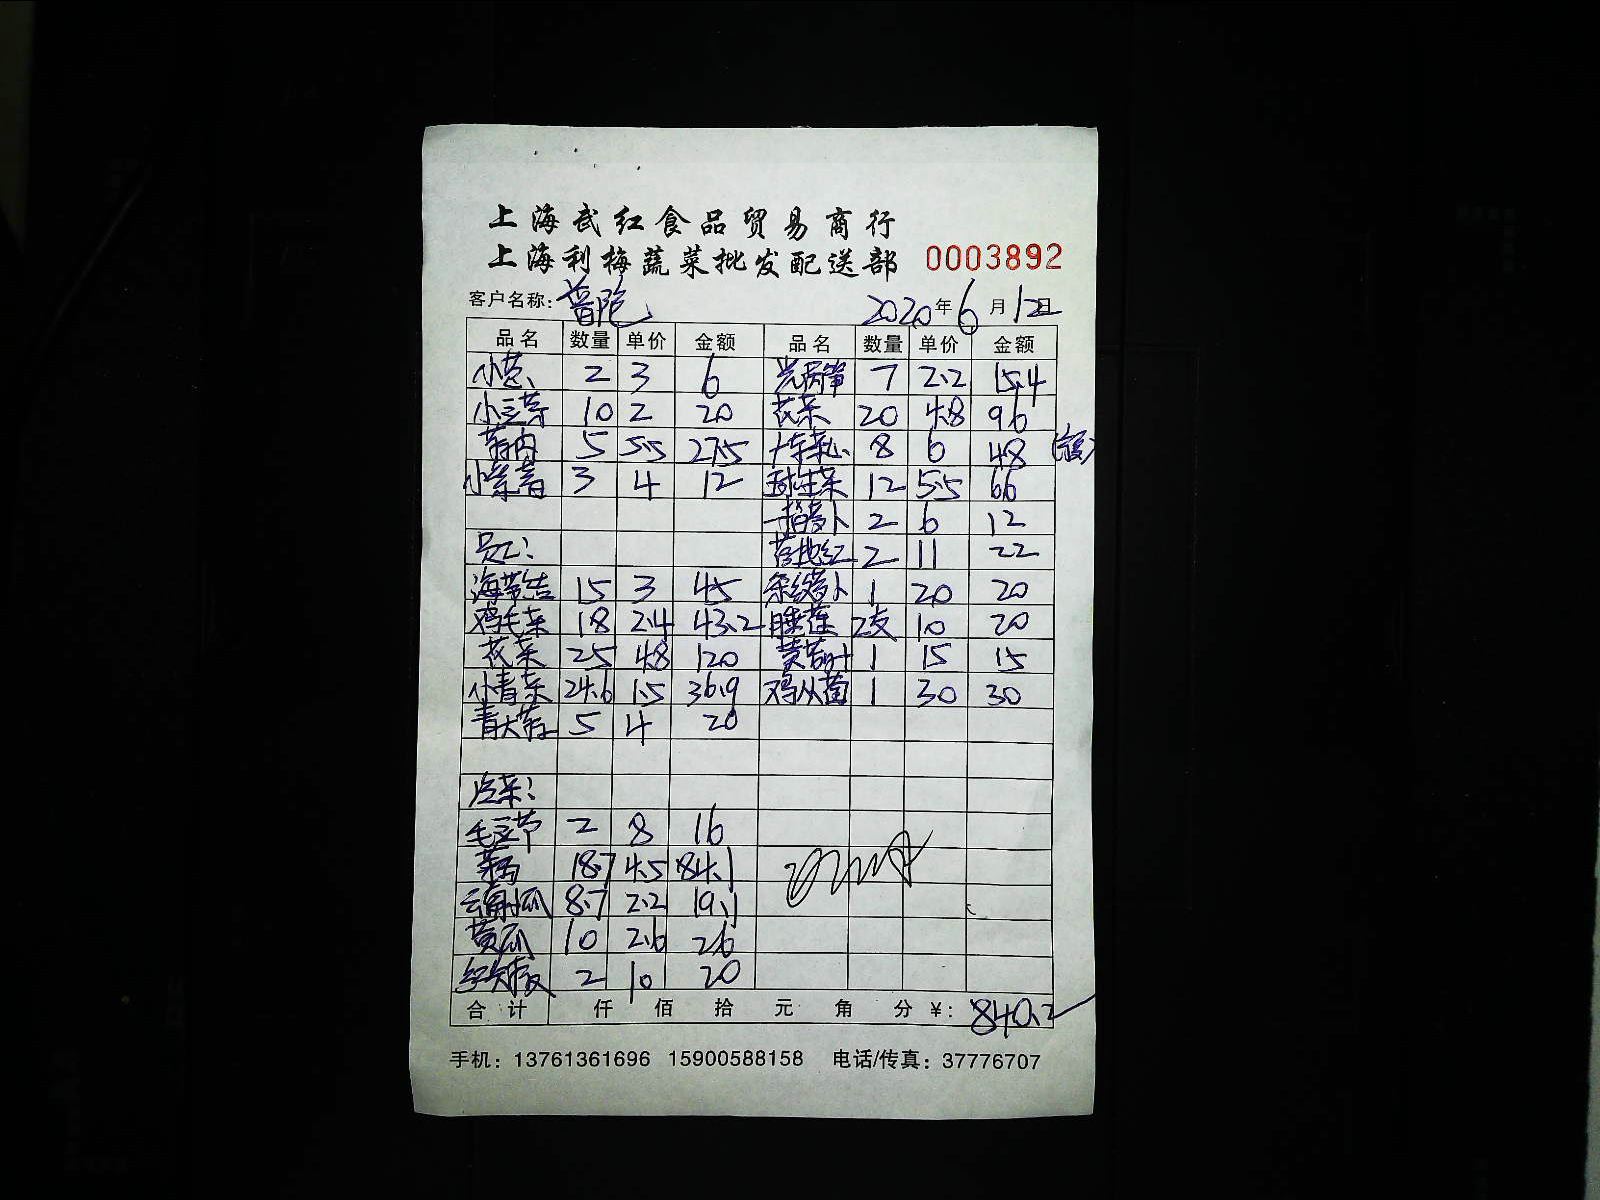 上海武红食品贸易商行
上海利梅蔬菜批发配送部 0003892
客户名称：普陀 2020年6月12日
品名 数量 单价 金额 品名 数量 单价 金额
小葱 2 3 6 7 2.2 15.4
小豆芽 10 2 20 花菜 20 4.8 96
5 5.5 27.5 广东菜心 8 6 48
小米青 3 4 12 球生菜 12 5.5 66
手指萝卜 2 6 12
落地红 2 11 22
员工：
海带结 15 3 45 1 20 20
鸡毛菜 18 2.4 43.2 睡莲 2支 10 20
花菜 25 4.8 120 黄苦叶 1 15 15
小青菜 24.6 1.5 36.9 鸡从菌 1 30 30
青大蒜 5 4 20
冷菜：
毛豆节 2 8 16
18.7 4.5 84.1
8.7 2.2 19.1
黄瓜 10 2.6 26
红尖椒 2 10 20
合计 仟 佰 拾 元 角 分 ¥：840.2
手机：13761361696 15900588158 电话/传真：37776707